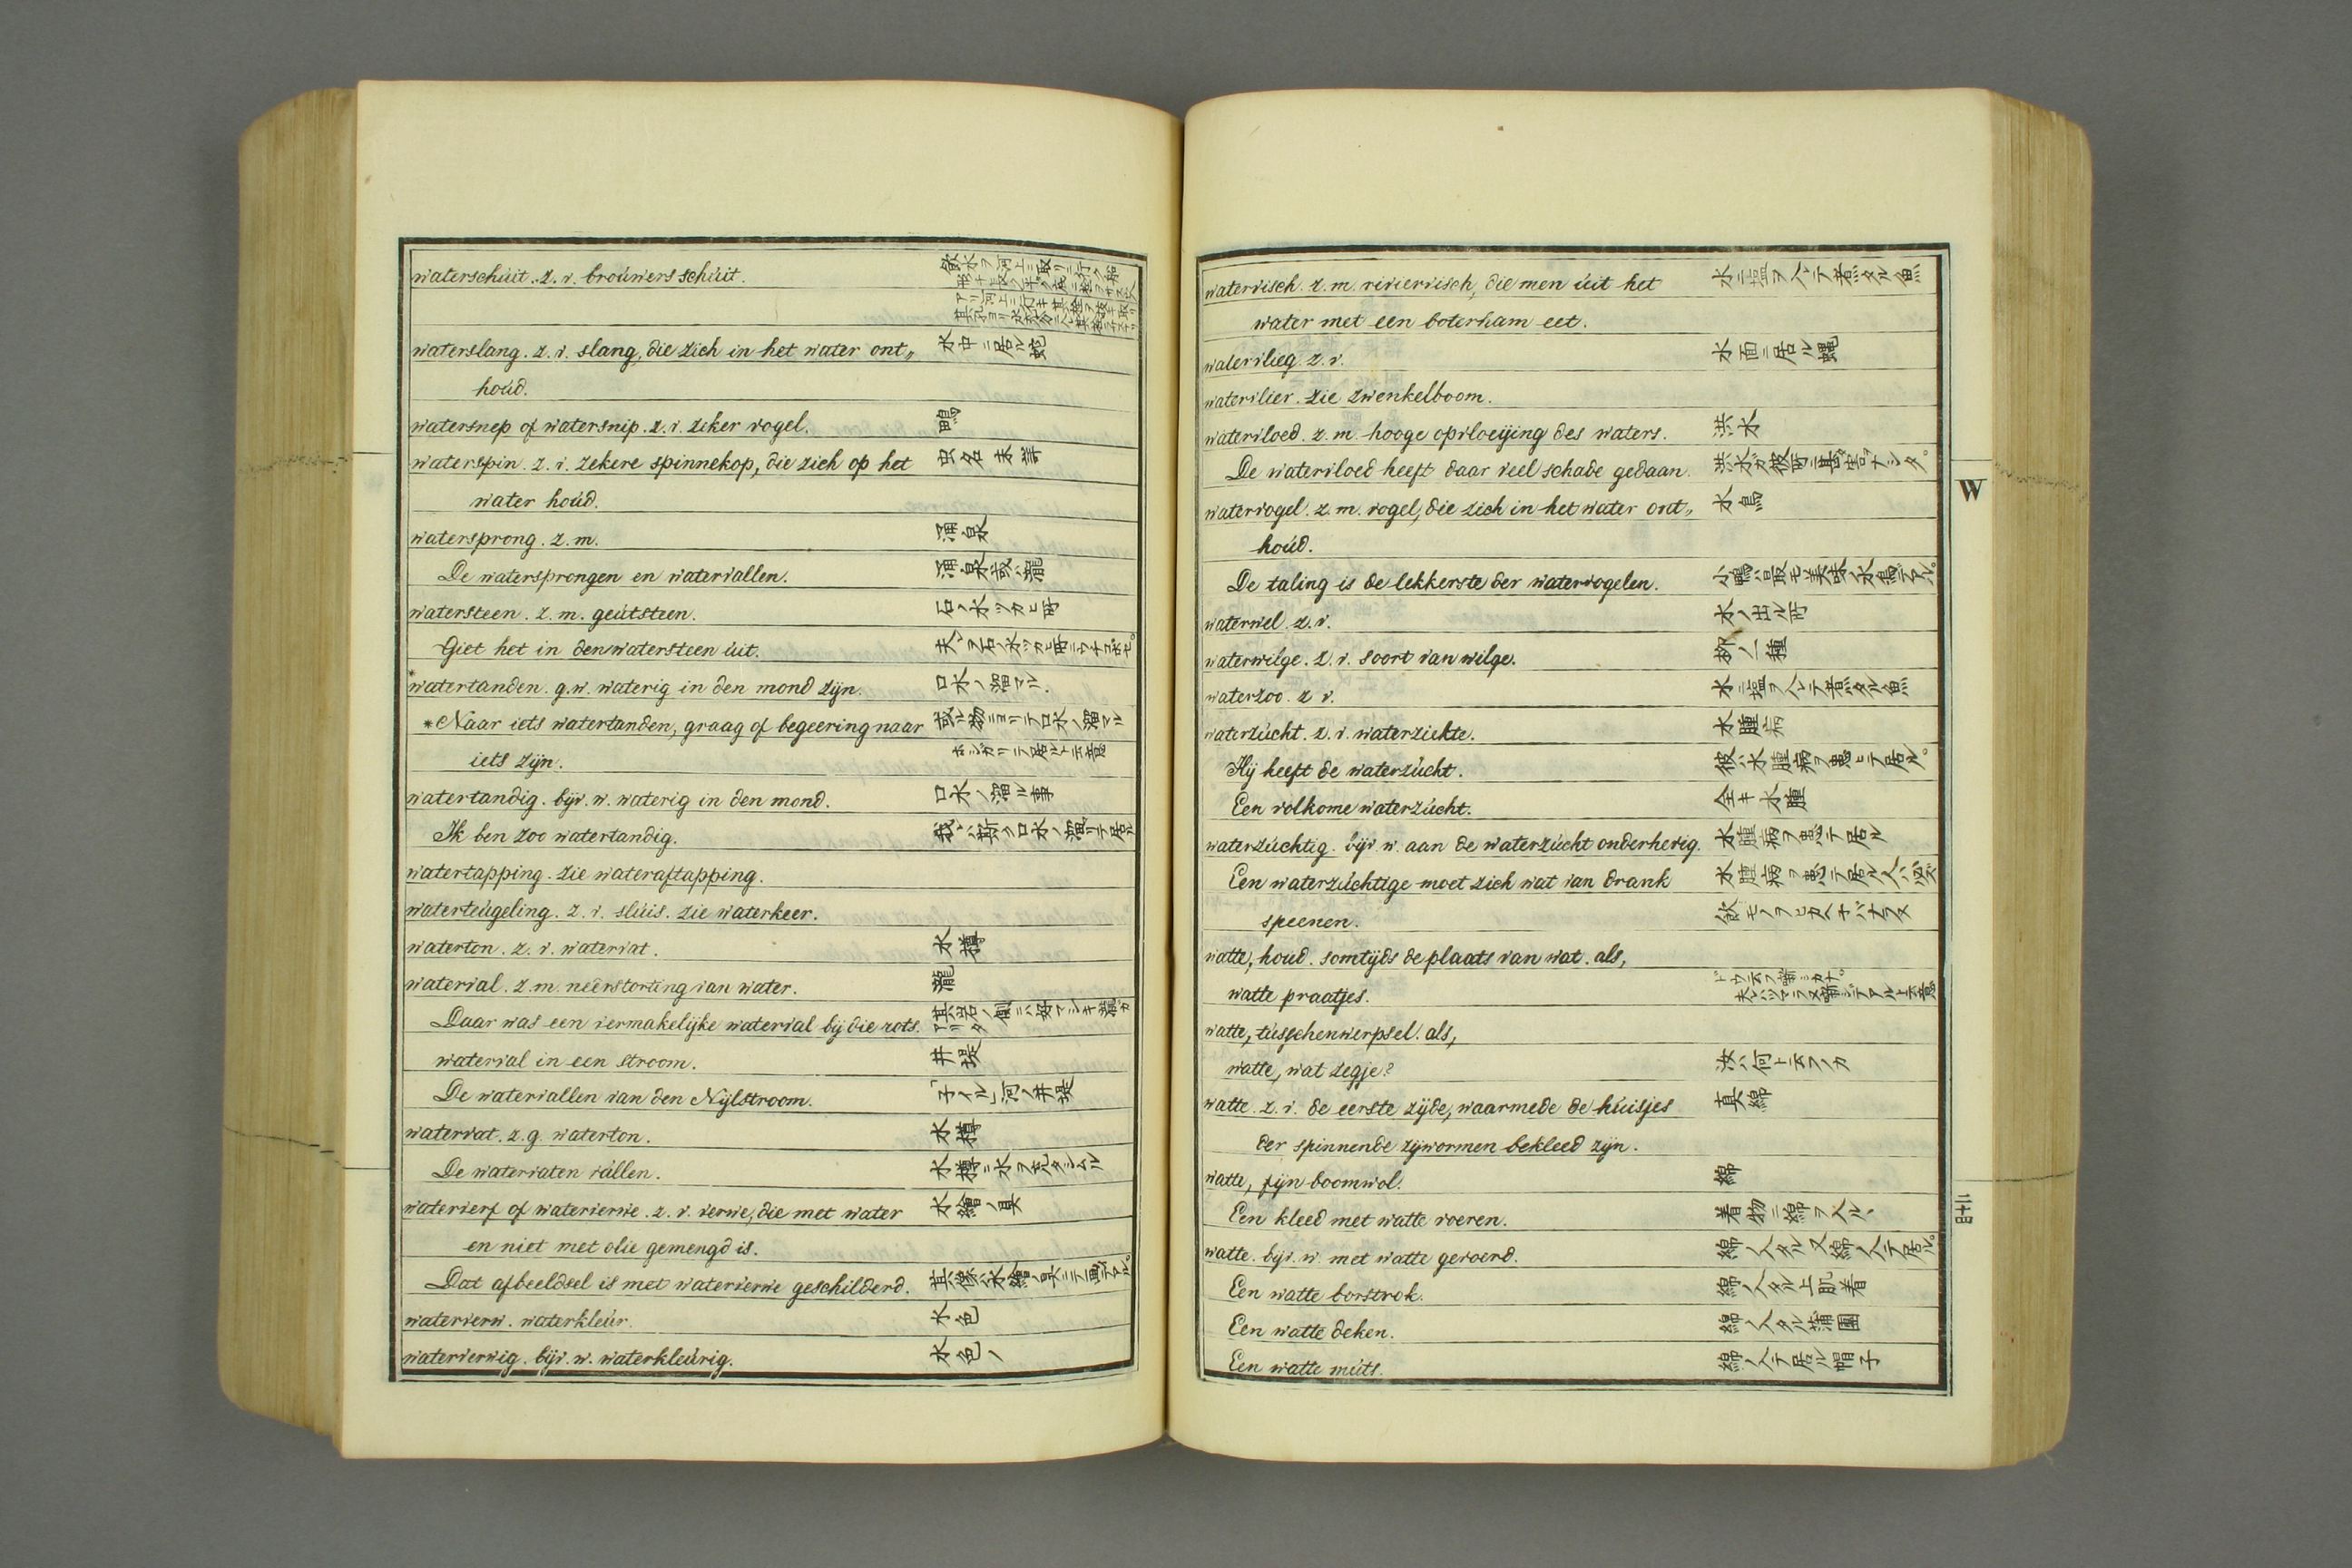 waterschúit. z. v. broúwers schúit.
waterslang. z. v. slang, die zich in het water ont„ 水中ニ居ル蛇
hoúd.
watersnep of watersnip. z. v. zeker vogel. 鴫
waterspin. z. v. zekere spinnekop, die zich op het 虫名未詳
water hoúd.
watersprong. z. m. 涌泉
De watersprongen en watervallen. 涌泉或ハ瀧
watersteen. z. m. geútsteen. 石ノ水ツカヒ所
Giet het in den watersteen úit.
*watertanden. g. w. waterig in den mond zijn. 口水ノ溜マル.
*Naar iets watertanden, graag of begeering naar 或ル物ニヨリテ口水ノ溜マル
iets zijn. ホシガリテ居ルト云意
watertandig. bijv. w. waterig in den mond. 口水ノ溜ル事
Ik ben zoo watertandig. 我ハ斯ク口水ノ溜リテ居ル
watertapping. zie wateraftapping.
waterteúgeling. z. v. slúis. zie waterkeer.
waterton. z. v. watervat. 水樽
waterval. z. m. neêrstorting van water. 瀧
Daar was een vermakelijke waterval bij die rots. 其岩ノ側ニハ好マシキ瀧ガアリタ
waterval in een stroom. 井堤
De watervallen van den Nijlstroom. 「子イル」河ノ井堤
watervat. z. g. waterton. 水樽
De watervaten vúllen. 水樽ニ水ヲ充タシムル
waterverf of waterverwe. z. v. verwe, die met water 水繪ノ具
en niet met olie gemengd is.
Dat afbeeldsel is met waterverwe geschilderd. 其像ハ水繪ノ具ニテ画テアル。
waterverw. waterkleúr. 水色
waterverwig. bijv. w. waterkleúrig. 水色ノ
watervisch. z. m. riviervisch, die men úit het 水ニ塩ヲ入テ煮タル魚
water met een boterham eet.
watervlieg. z. v. 水面ニ居ル蝿
watervlier. zie zwenkelboom.
watervloed. z. m. hooge opvloeijing des waters. 洪水
De watervloed heeft daar veel schade gedaan. 洪水ガ彼所ニ甚タ害ヲナシタ。
watervogel. z. m. vogel, die zich in het water ont„ 水鳥
hoúd.
De taling is de lekkerste der watervogelen. 小鴨ハ最モ美味ノ水鳥テアル。
waterwel. z. v. 水ノ出ル所
waterwilge. z. v. soort van wilge. 柳ノ一種
waterzoo. z. v. 水ニ塩ヲ入テ煮タル魚
waterzúcht. z. v. waterziekte. 水腫病
Hij heeft de waterzúcht. 彼ハ水腫病ヲ患ヒテ居ル。
Een volkome waterzúcht. 全キ水腫
waterzúchtig. bijv. w. aan de waterzúcht onderhevig. 水腫病ヲ患テ居ル
Een waterzúchtige moet zich wat van drank 水腫病ヲ患テ居ル人ハ必ズ
speenen. 飲モノヲヒカヘネバナラヌ
watte, houd. somtijds de plaats van wat. als,
watte praatjes.
watte, tusschenwerpsel. als,
watte, wat zegje? 汝ハ何ト云フノカ
watte. z. v. de eerste zijde, waarmede de húisjes 真綿
der spinnende zijwormen bekleed zijn.
watte, fijn boomwol. 綿
Een kleed met watte voeren. 着物ニ綿ヲ入ル、
watte. bijv. w. met watte gevoerd. 綿ノ入タル又綿ノ入テ居ル。
Een watte borstrok. 綿ノ入タル上肌着
Een watte deken. 綿ノ入タル蒲團
Een watte múts. 綿ノ入テ居ル帽子
W